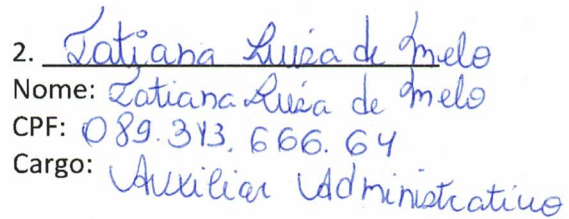 2. Tatiana Luiza de Melo
Nome: Tatiana Luiza de Melo
CPF: 089.313.666.64
Cargo: Auxiliar Administrativo